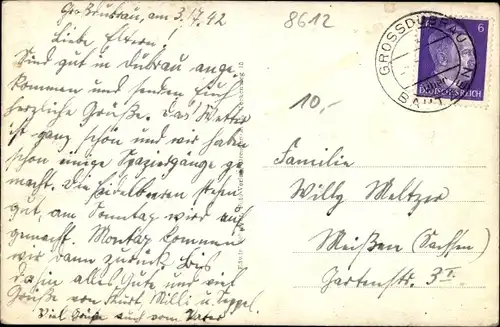 Großdubrau, am 3./7. 42
Liebe Eltern!
Sind gut in Dubrau ange
kommen und senden Euch
herzliche Grüße. Das Wetter
ist ganz schön und wir haben
schon einige Spaziergänge ge
macht. Die Heidelbeeren stehen
gut, am Sonntag wird auf
gemacht. Montag kommen
wir dann zurück. Bis
dahin alles Gute und viel
Grüße von Kurt, Willi u.
Viel Grüße auch vom Vater
8612
10,-
GROSSDUBRAU
6
DEUTSCHES REICH
Familie
Willy Meltzer
Meißen (Sachsen)
Gartenstr. 3 I.